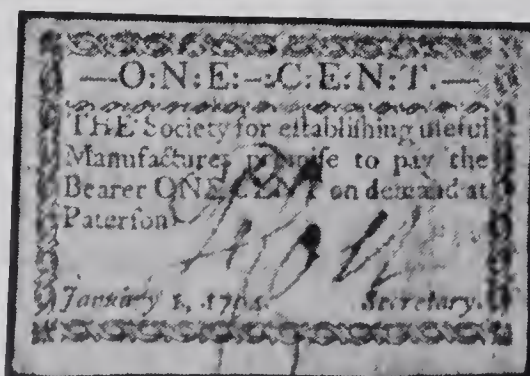 —O:N:E:—:C:E:N:T.—
THE Society for eſtabliſhing uſeful
Manufactures promiſe to pay the
Bearer ONE CENT on demand at
Paterſon.
January 1,
Secretary.